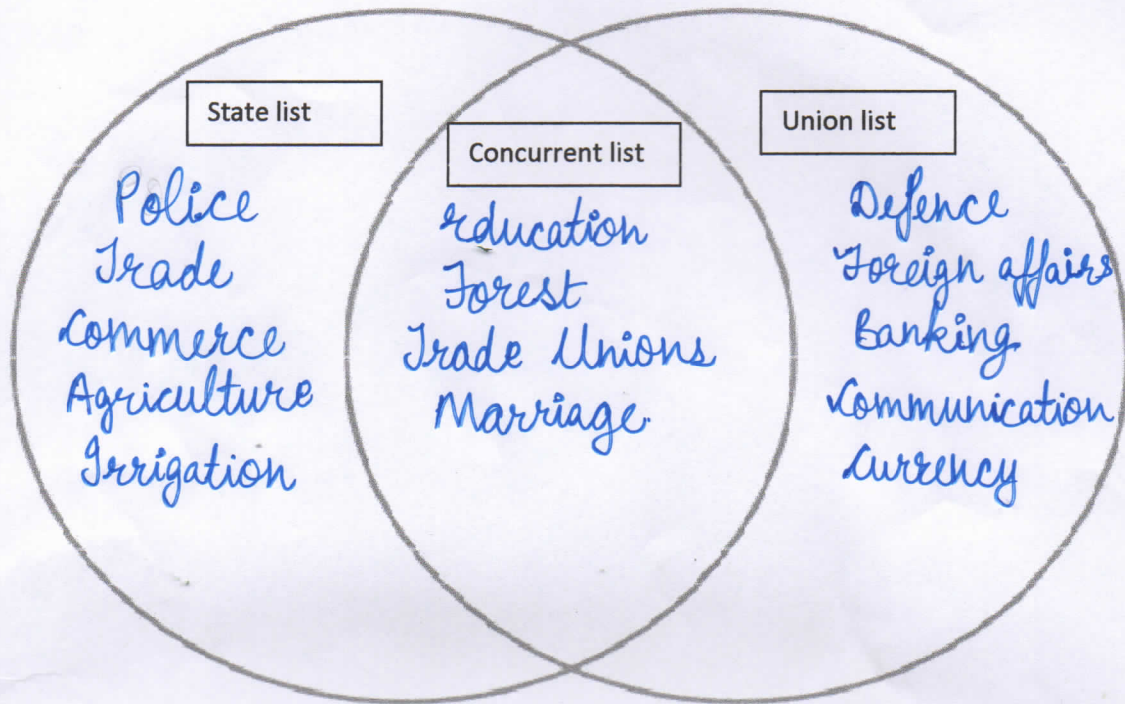 State list
Police
Trade
Commerce
Agriculture
Irrigation
Concurrent list
Education
Forest
Trade Unions
Marriage.
Union list
Defence
Foreign affairs
Banking.
Communication
Currency